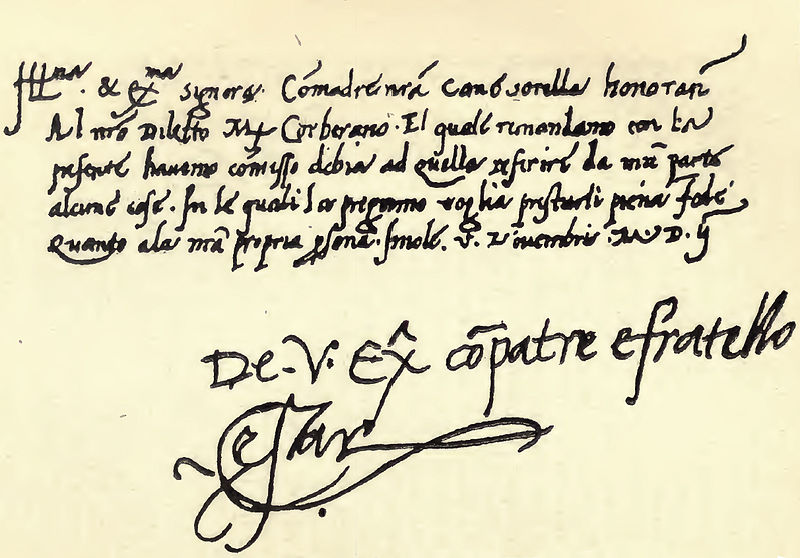 Ill.ma & Ex.ma Signora Com̄adre nr̄a Come sorella honoran̄
Al nrō Diletto M. Corberano. El quale remandamo con la
presente havemo com̄isso debia ad quella referire da nr̄a parte
alcune cose. In le quali la pregamo voglia prestarli piena fede
Quanto a la nr̄a propria persona. Imole. V. novembris. M. D. ij
De. V. Ex̄ cōpatre e fratello
Cesar